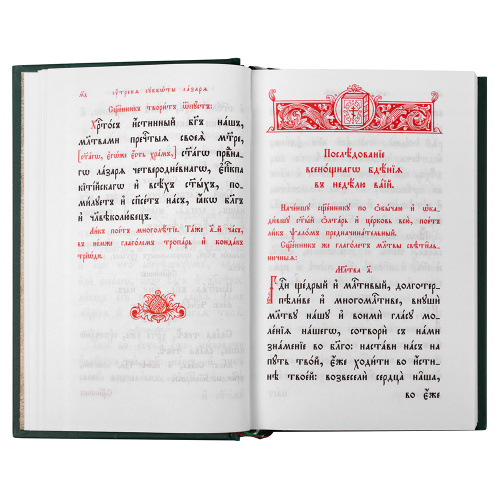 м҃д
ᲂу҆́трєнѧ сꙋббѡ́ты ла́зарѧ
Сщ҃е́нникъ твори́тъ ѿпꙋ́стъ:
Хрⷭ҇то́съ и҆́стинный бг҃ъ на́шъ,
мл҃твами пречⷭ҇тыѧ своеѧ̀ мт҃ре,
[ст҃а́гѡ, є҆гѡ́же є҆́сть хра́мъ,] ст҃а́гѡ пра́внагѡ
ла́зарѧ четверодне́внагѡ, є҆пⷭ҇кпа
кїті́йскагѡ и҆ всѣ́хъ ст҃ы́хъ, поми́лꙋетъ
и҆ сп҃се́тъ на́съ, ꙗ҆́кѡ бл҃гъ
и҆ чл҃вѣколю́бецъ.
Ли́къ пое́тъ многолѣ́тїе. Та́же а҃-й ча́съ,
въ не́мже глаго́лемъ тропа́рь и҆ конда́къ
трїѡ́ди.
Послѣ́дованїе
всено́щнагѡ бдѣ́нїѧ
въ недѣ́лю ва́їй.
Наче́ншꙋ сщ҃е́нникꙋ по ѻ҆бы́чаю и҆ ѡ҆кади́вшꙋ
ст҃ы́й ѻ҆лта́рь и҆ це́рковь всю̀, пое́тъ
ли́къ ѱало́мъ предначина́тельный.
Сщ҃е́нникъ же глаго́летъ мл҃твы свѣти́льничныѧ:
Мл҃тва а҃.
Гдⷭ҇и ще́дрый и҆ млⷭ҇тивый, долготерпѣли́ве
и҆ многомлⷭ҇тиве, внꙋшѝ
мл҃твꙋ на́шꙋ и҆ вонмѝ гла́сꙋ моле́нїѧ
на́шегѡ, сотворѝ съ на́ми
зна́менїе во бл҃го: наста́ви на́съ на
пꙋ́ть тво́й, є҆́же ходи́ти во и҆́стинѣ
твое́й: возвеселѝ сердца̀ на̑ша,
во є҆́же